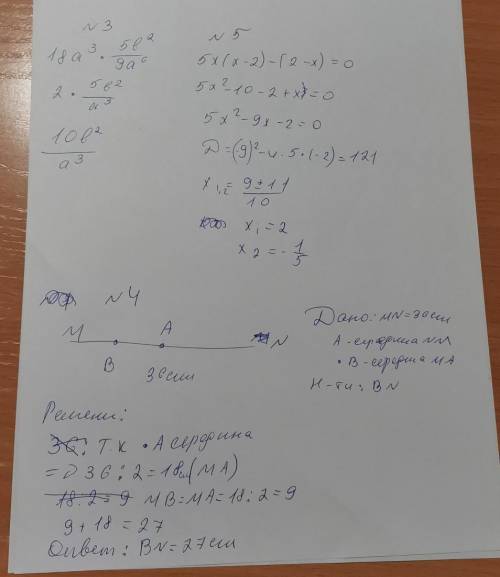 №3
18a³ · 5b²/9a⁶
2 · 5b²/a³
10b²/a³
№5
5x(x-2)-(2-x)=0
5x²-10-2+x=0
5x²-9x-2=0
D=(-9)²-4·5·(-2)=121
x₁,₂= 9±11/10
x₁=2
x₂=-1/5
№4
M B A N
36см
Дано: MN=36см
A-середина NM
• B-середина MA
Н-ти: BN
Решени:
36: Т.к •A середина
=> 36:2=18см(MA)
18:2=9 MB=MA=18:2=9
9+18=27
Ответ: BN=27см